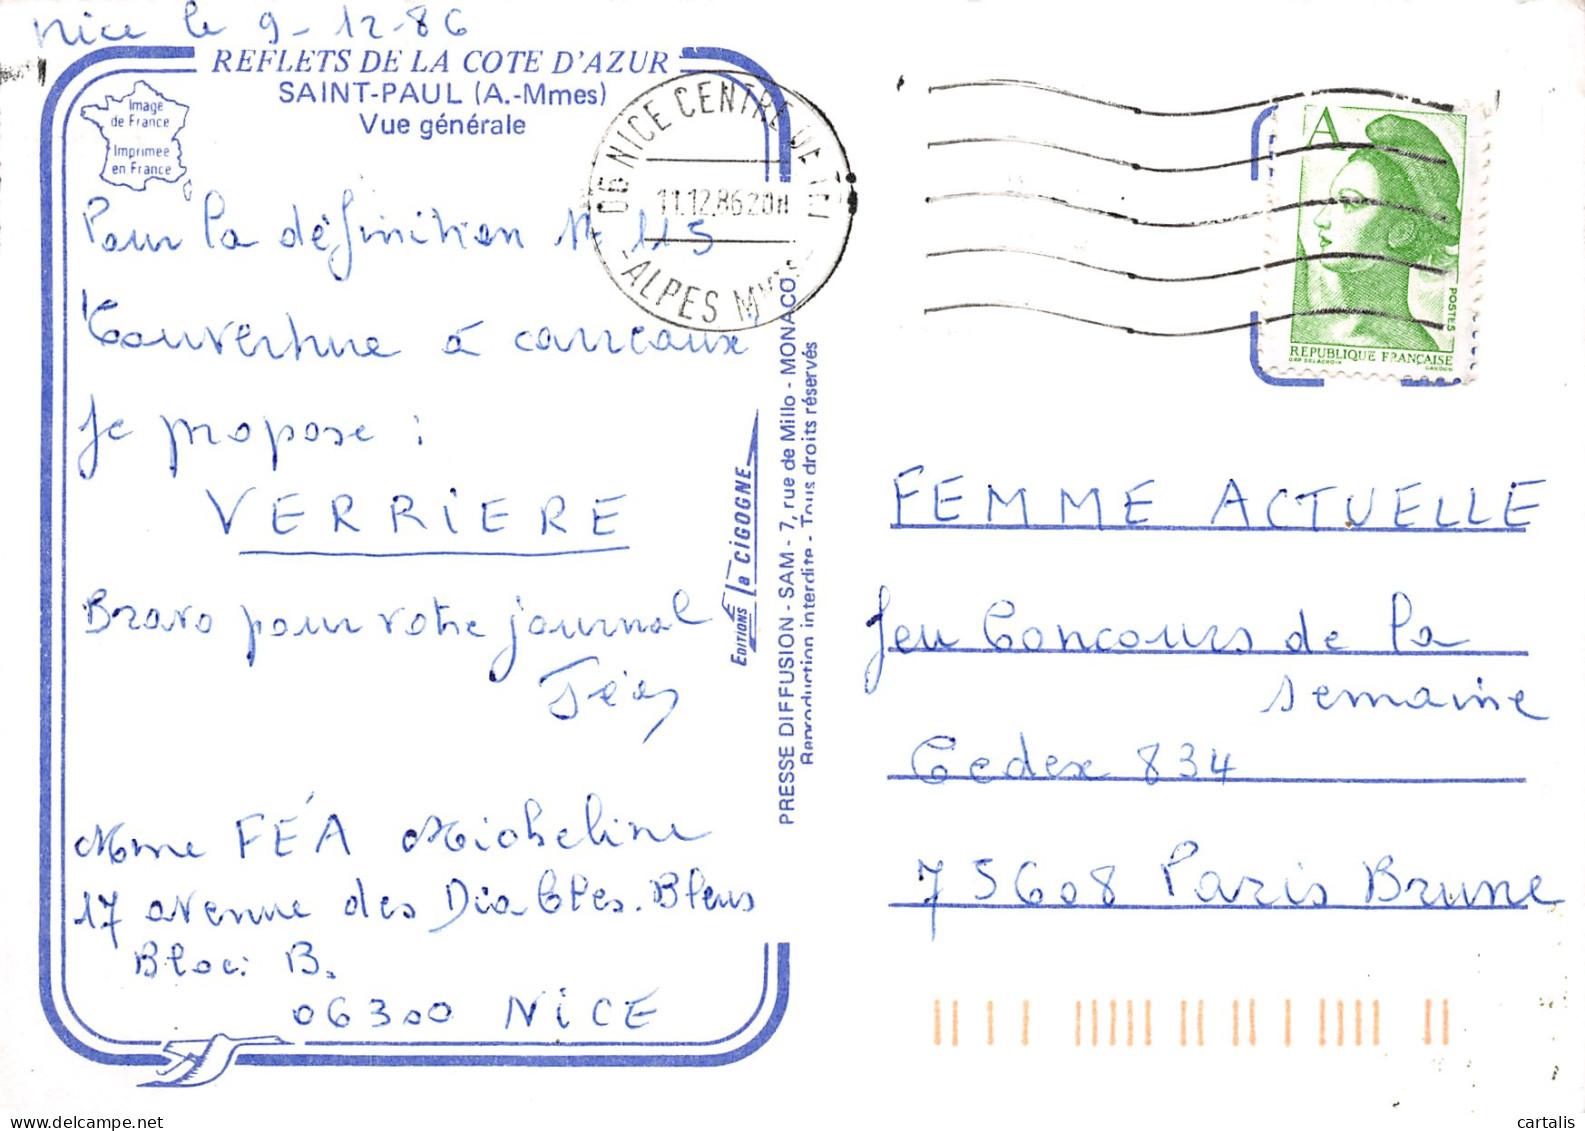 Nice le 9-12-86
REFLETS DE LA COTE D'AZUR
SAINT-PAUL (A.-Mmes)
Vue générale
Image
de France
Imprimée
en France
06 NICE CENTRE
11.12.86 20H
ALPES MMES
Pour la définition N 115
Couverture à carreaux
Je propose :
VERRIERE
Bravo pour votre journal
Féa
Mme FÉA Micheline
17 avenue des Diables. Bleus
Bloc: B.
06300 NICE
EDITIONS la CIGOGNE
PRESSE DIFFUSION - SAM - 7, rue de Millo - MONACO
Reproduction interdite - Tous droits réservés
A
POSTES
REPUBLIQUE FRANÇAISE
DAP. DELACROIX
GANDON
FEMME ACTUELLE
Jeu Concours de la
semaine
Cedex 834
75608 Paris Brune
cartalis
delcampe.net